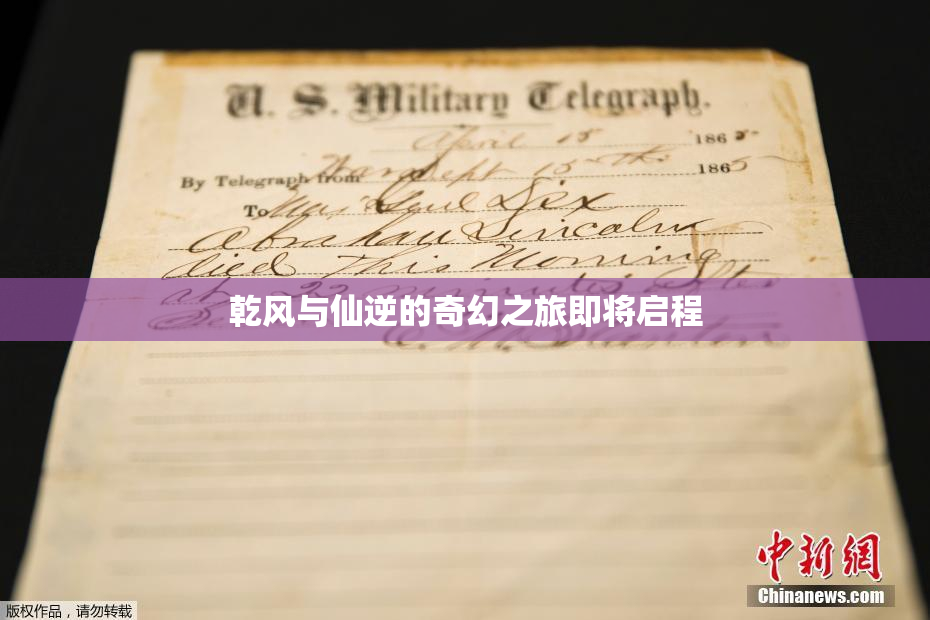 U. S. Military Telegraph.
April 15 1865
By Telegraph from War Dept 15th 1865
To Maj Genl Dix
Abraham Lincoln
died This Morning
at 22 minutes after
乾风与仙逆的奇幻之旅即将启程
Stanton
中新網
Chinanews.com
版权作品，请勿转载